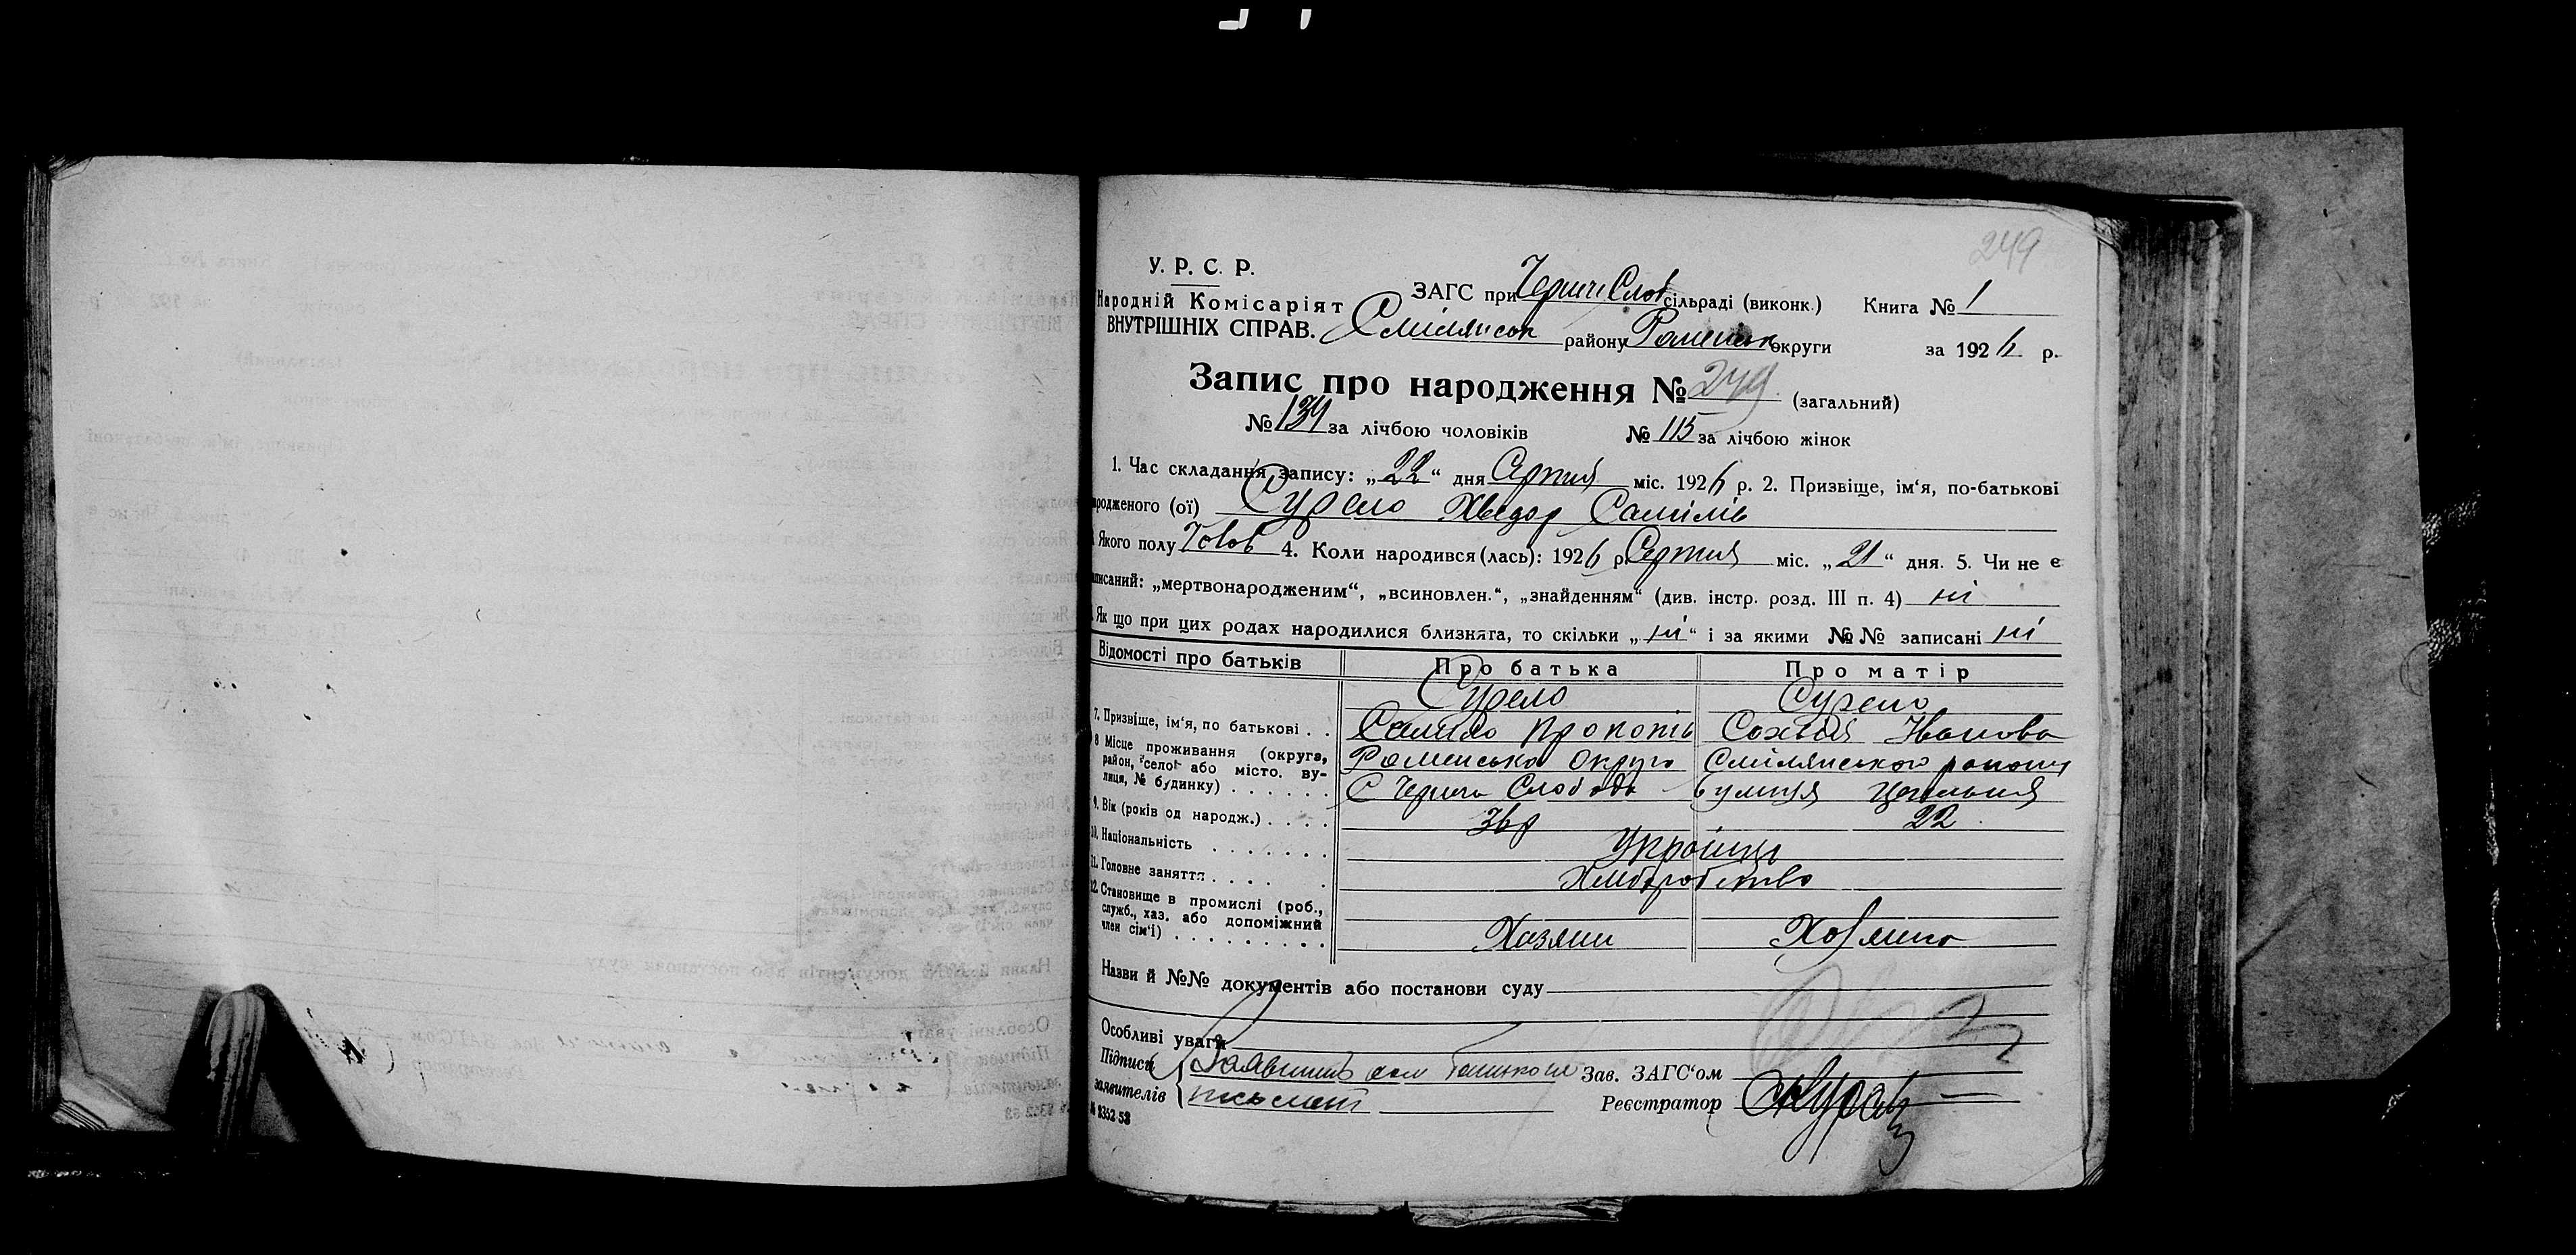 249
У. Р. С. Р.
Народній Комісаріят
ВНУТРІШНІХ СПРАВ.
ЗАГС при Черччі Слоб сільраді (виконк.) Книга № 1
Смілянськ району Роменськ округи за 1926 р.
Запис про народження № 249 (загальний)
№ 134 за лічбою чоловіків № 115 за лічбою жінок
1. Час складання запису: „22“ дня Серпня міс. 1926 р. 2. Призвіще, ім‘я, по-батькові
народженого (ої) Сурело Хведор Самілів
Якого полу Чолов 4. Коли народився (лась): 1926 р. Серпня міс. „21“ дня. 5. Чи не є
записаний: „мертвонародженим“, „всиновлен.“, „знайденням“ (див. інстр. розд. III п. 4) ні
Як що при цих родах народилися близнята, то скільки „ні“ і за якими №№ записані ні
Відомості про батьків Про батька Про матір
Сурело Сурело
7. Призвіще, ім‘я, по батькові . . Самійло Прокопів Іванова
8 Місце проживання (округа, район, село або місто, вулиця, № будинку) . . . . . . Роменська Округа Смілянського району
С Слобода вулиця
9. Вік (років од народж.) . . . . 36р 22
10. Національність . . . . . . . Україн
11. Головне заняття . . . . . Хліборобство
12. Становище в промислі (роб., служб., хаз. або допоміжний член сім‘ї) . . . . . . . . . Хазяин Хазяина
Назви й №№ документів або постанови суду
Особливі уваги
Підписи заявителів
Зав. ЗАГС‘ом
Реєстратор
№ 2352-53